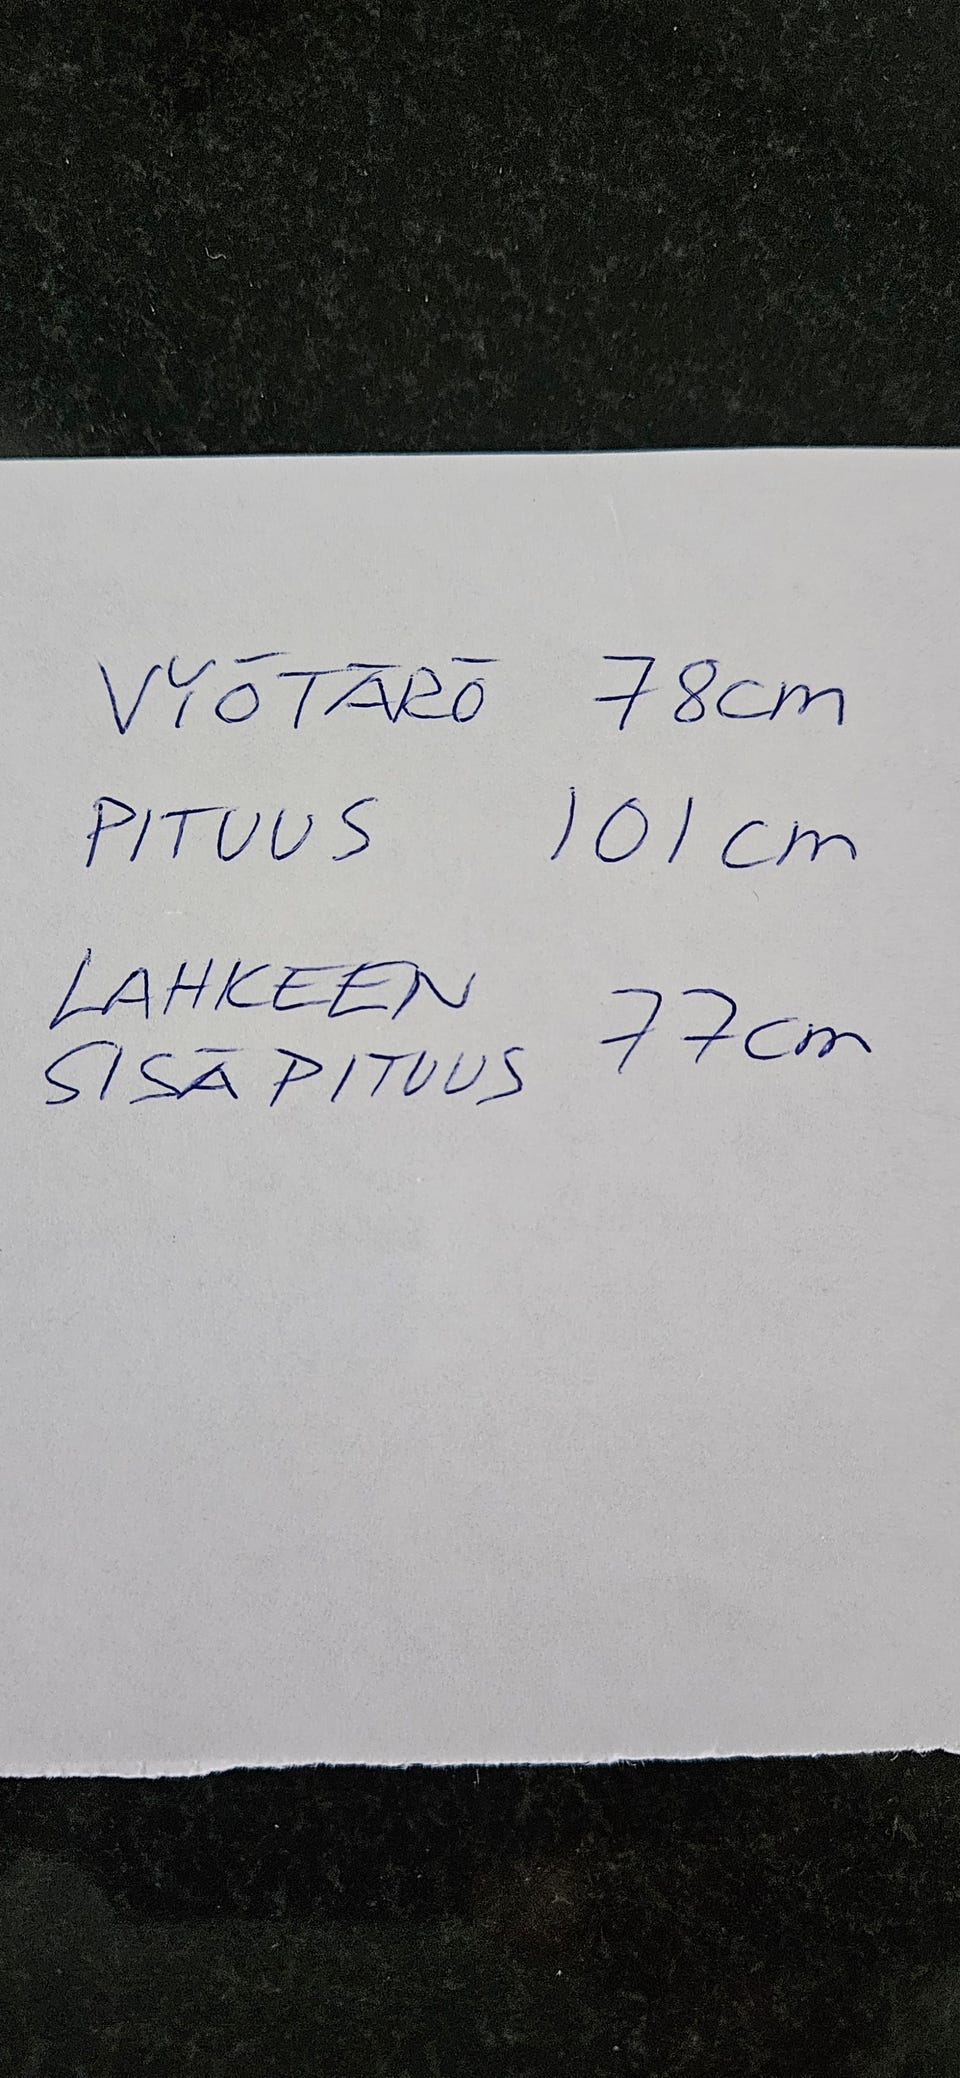 VYÖTÄRÖ 78cm
PITUUS 101cm
LAHKEEN
SISÄPITUUS 77cm